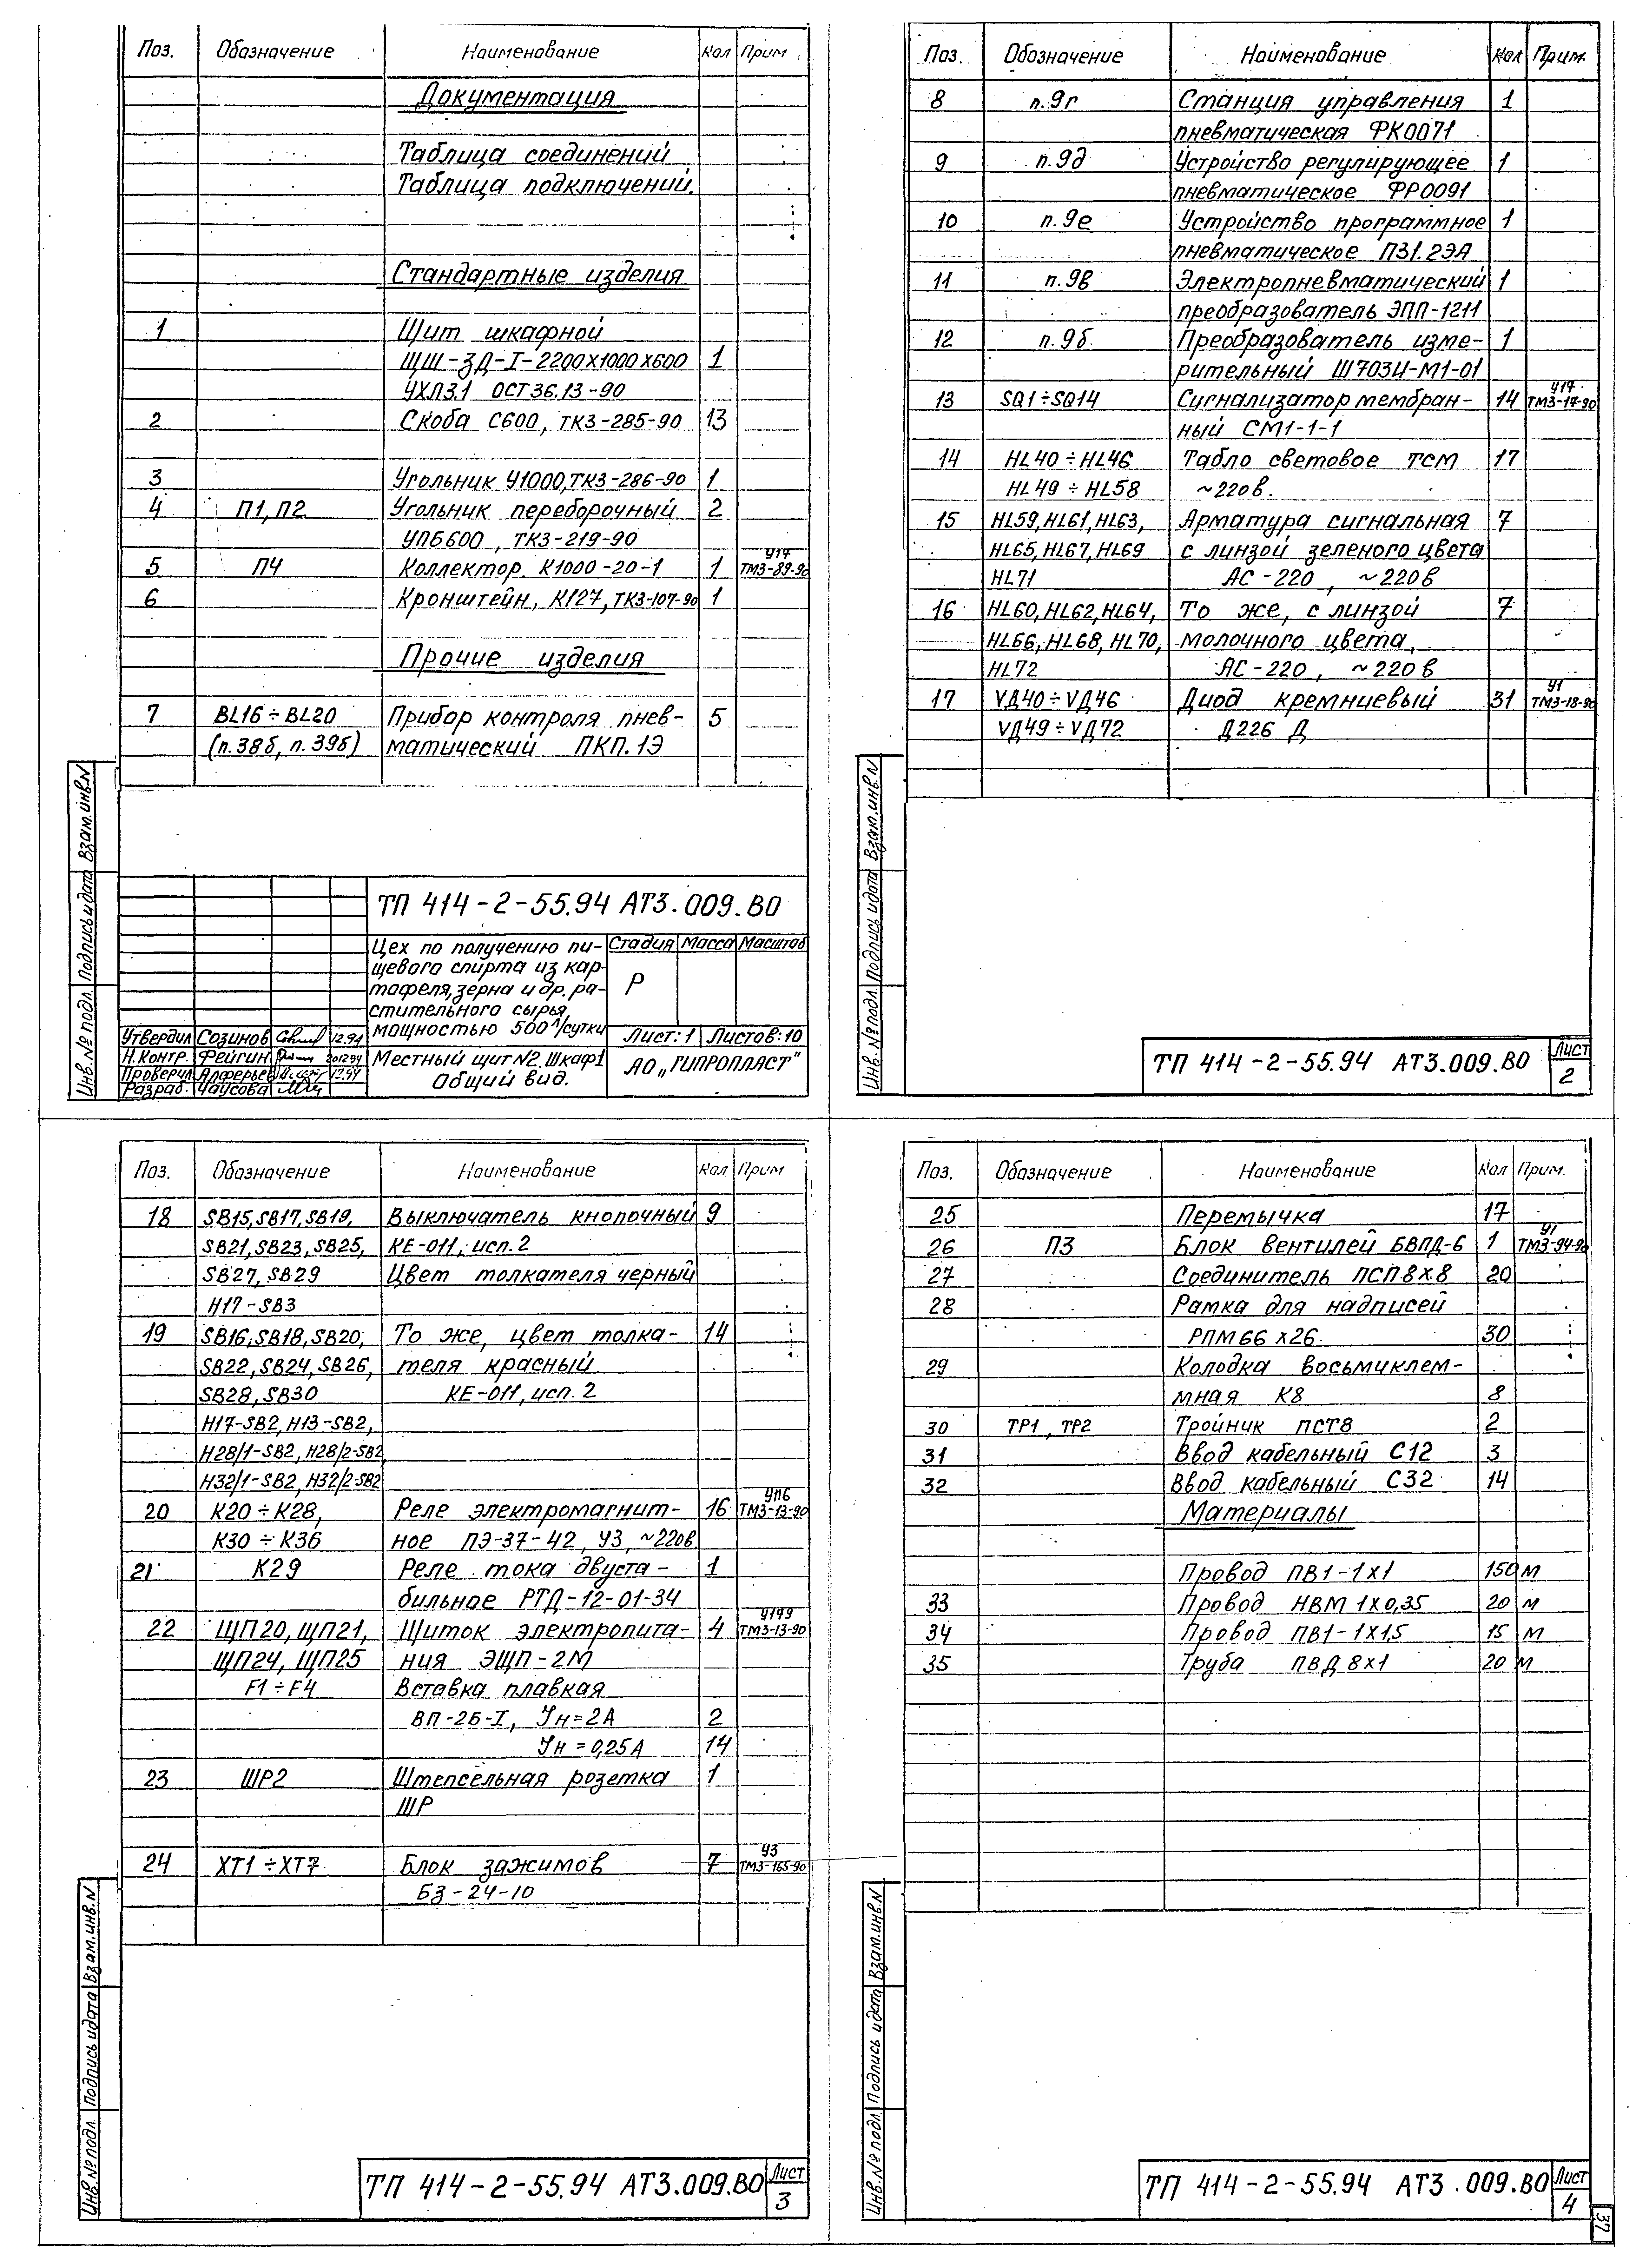 Поз. Обозначение Наименование Кол Прим
Документация
Таблица соединений
Таблица подключений.
Стандартные изделия
1 Щит шкафной
ЩШ-ЗД-I-2200х1000х600 1
УХЛ3.1 ОСТ36.13-90
2 Скоба С600, ТК3-285-90 13
3 Угольник У1000, ТК3-286-90 1
4 П1, П2 Угольник переборочный 2
УПБ600, ТК3-219-90
5 П4 Коллектор. К1000-20-1 1 У17 ТМ3-89-90
6 Кронштейн, К127, ТК3-107-90 1
Прочие изделия
7 BL16÷BL20 Прибор контроля пнев- 5
(п.38б, п.39б) матический ПКП.1Э
Взам.инв.N
Подпись и дата
Инв.№ подл.
ТП 414-2-55.94 АТ3.009.ВО
Цех по получению пи-
щевого спирта из кар-
тофеля, зерна и др. ра-
стительного сырья,
мощностью 500 л/сутки
Стадия Масса Масштаб
Р
Лист: 1 Листов: 10
Утвердил Созинов 12.94
Н.Контр. Фейгин 201294
Проверил Алферьев 12.94
Разраб. Чаусова
Местный щит N2. Шкаф 1
Общий вид.
АО „ГИПРОПЛАСТ"
Поз. Обозначение Наименование Кол Прим.
8 п.9г Станция управления 1
пневматическая ФК0071
9 п.9д Устройство регулирующее 1
пневматическое ФР0091
10 п.9е Устройство программное 1
пневматическое П31.2ЭА
11 п.9в Электропневматический 1
преобразователь ЭПП-1211
12 п.9б Преобразователь изме- 1
рительный Ш703И-М1-01
13 SQ1÷SQ14 Сигнализатор мембран- 14 У17 ТМ3-17-90
ный СМ1-1-1
14 HL40÷HL46 Табло световое ТСМ 17
HL49÷HL58 ~220в.
15 HL59, HL61, HL63, Арматура сигнальная 7
HL65, HL67, HL69 с линзой зеленого цвета
HL71 АС-220, ~220в
16 HL60, HL62, HL64, То же, с линзой 7
HL66, HL68, HL70, молочного цвета,
HL72 АС-220, ~220в
17 VД40÷VД46 Диод кремниевый 31 У1 ТМ3-18-90
VД49÷VД72 Д226 Д
Взам.инв.N
Подпись и дата
Инв.№ подл.
ТП 414-2-55.94 АТ3.009.ВО Лист 2
Поз. Обозначение Наименование Кол Прим
18 SB15, SB17, SB19, Выключатель кнопочный 9
SB21, SB23, SB25, КЕ-011, исп.2
SB27, SB29 Цвет толкателя черный
Н17-SB3
19 SB16, SB18, SB20, То же, цвет толка- 14
SB22, SB24, SB26, теля красный
SB28, SB30 КЕ-011, исп.2
Н17-SB2, Н13-SB2,
Н28/1-SB2, Н28/2-SB2
Н32/1-SB2, Н32/2-SB2
20 К20÷К28, Реле электромагнит- 16 У116 ТМ3-13-90
К30÷К36 ное ПЭ-37-42, У3, ~220в
21 К29 Реле тока двуста- 1
бильное РТД-12-01-34
22 ЩП20, ЩП21, Щиток электропита- 4 У149 ТМ3-13-90
ЩП24, ЩП25 ния ЭЩП-2М
F1÷F4 Вставка плавкая
ВП-2Б-I, Jн=2А 2
Jн=0,25А 14
23 ШР2 Штепсельная розетка 1
ШР
24 ХТ1÷ХТ7 Блок зажимов 7 У3 ТМ3-165-90
БЗ-24-10
Взам.инв.N
Подпись и дата
Инв.№ подл.
ТП 414-2-55.94 АТ3.009.ВО Лист 3
Поз. Обозначение Наименование Кол Прим.
25 Перемычка 17
26 П3 Блок вентилей БВПД-6 1 У1 ТМ3-94-90
27 Соединитель ПСП 8х8 20
28 Рамка для надписей
РПМ 66х26 30
29 Колодка восьмиклем-
мная К8 8
30 ТР1, ТР2 Тройник ПСТ8 2
31 Ввод кабельный С12 3
32 Ввод кабельный С32 14
Материалы
Провод ПВ1-1х1 150 м
33 Провод НВМ 1х0,35 20 м
34 Провод ПВ1-1х1,5 15 м
35 Труба ПВД 8х1 20 м
Взам.инв.N
Подпись и дата
Инв.№ подл
ТП 414-2-55.94 АТ3.009.ВО Лист 4
37